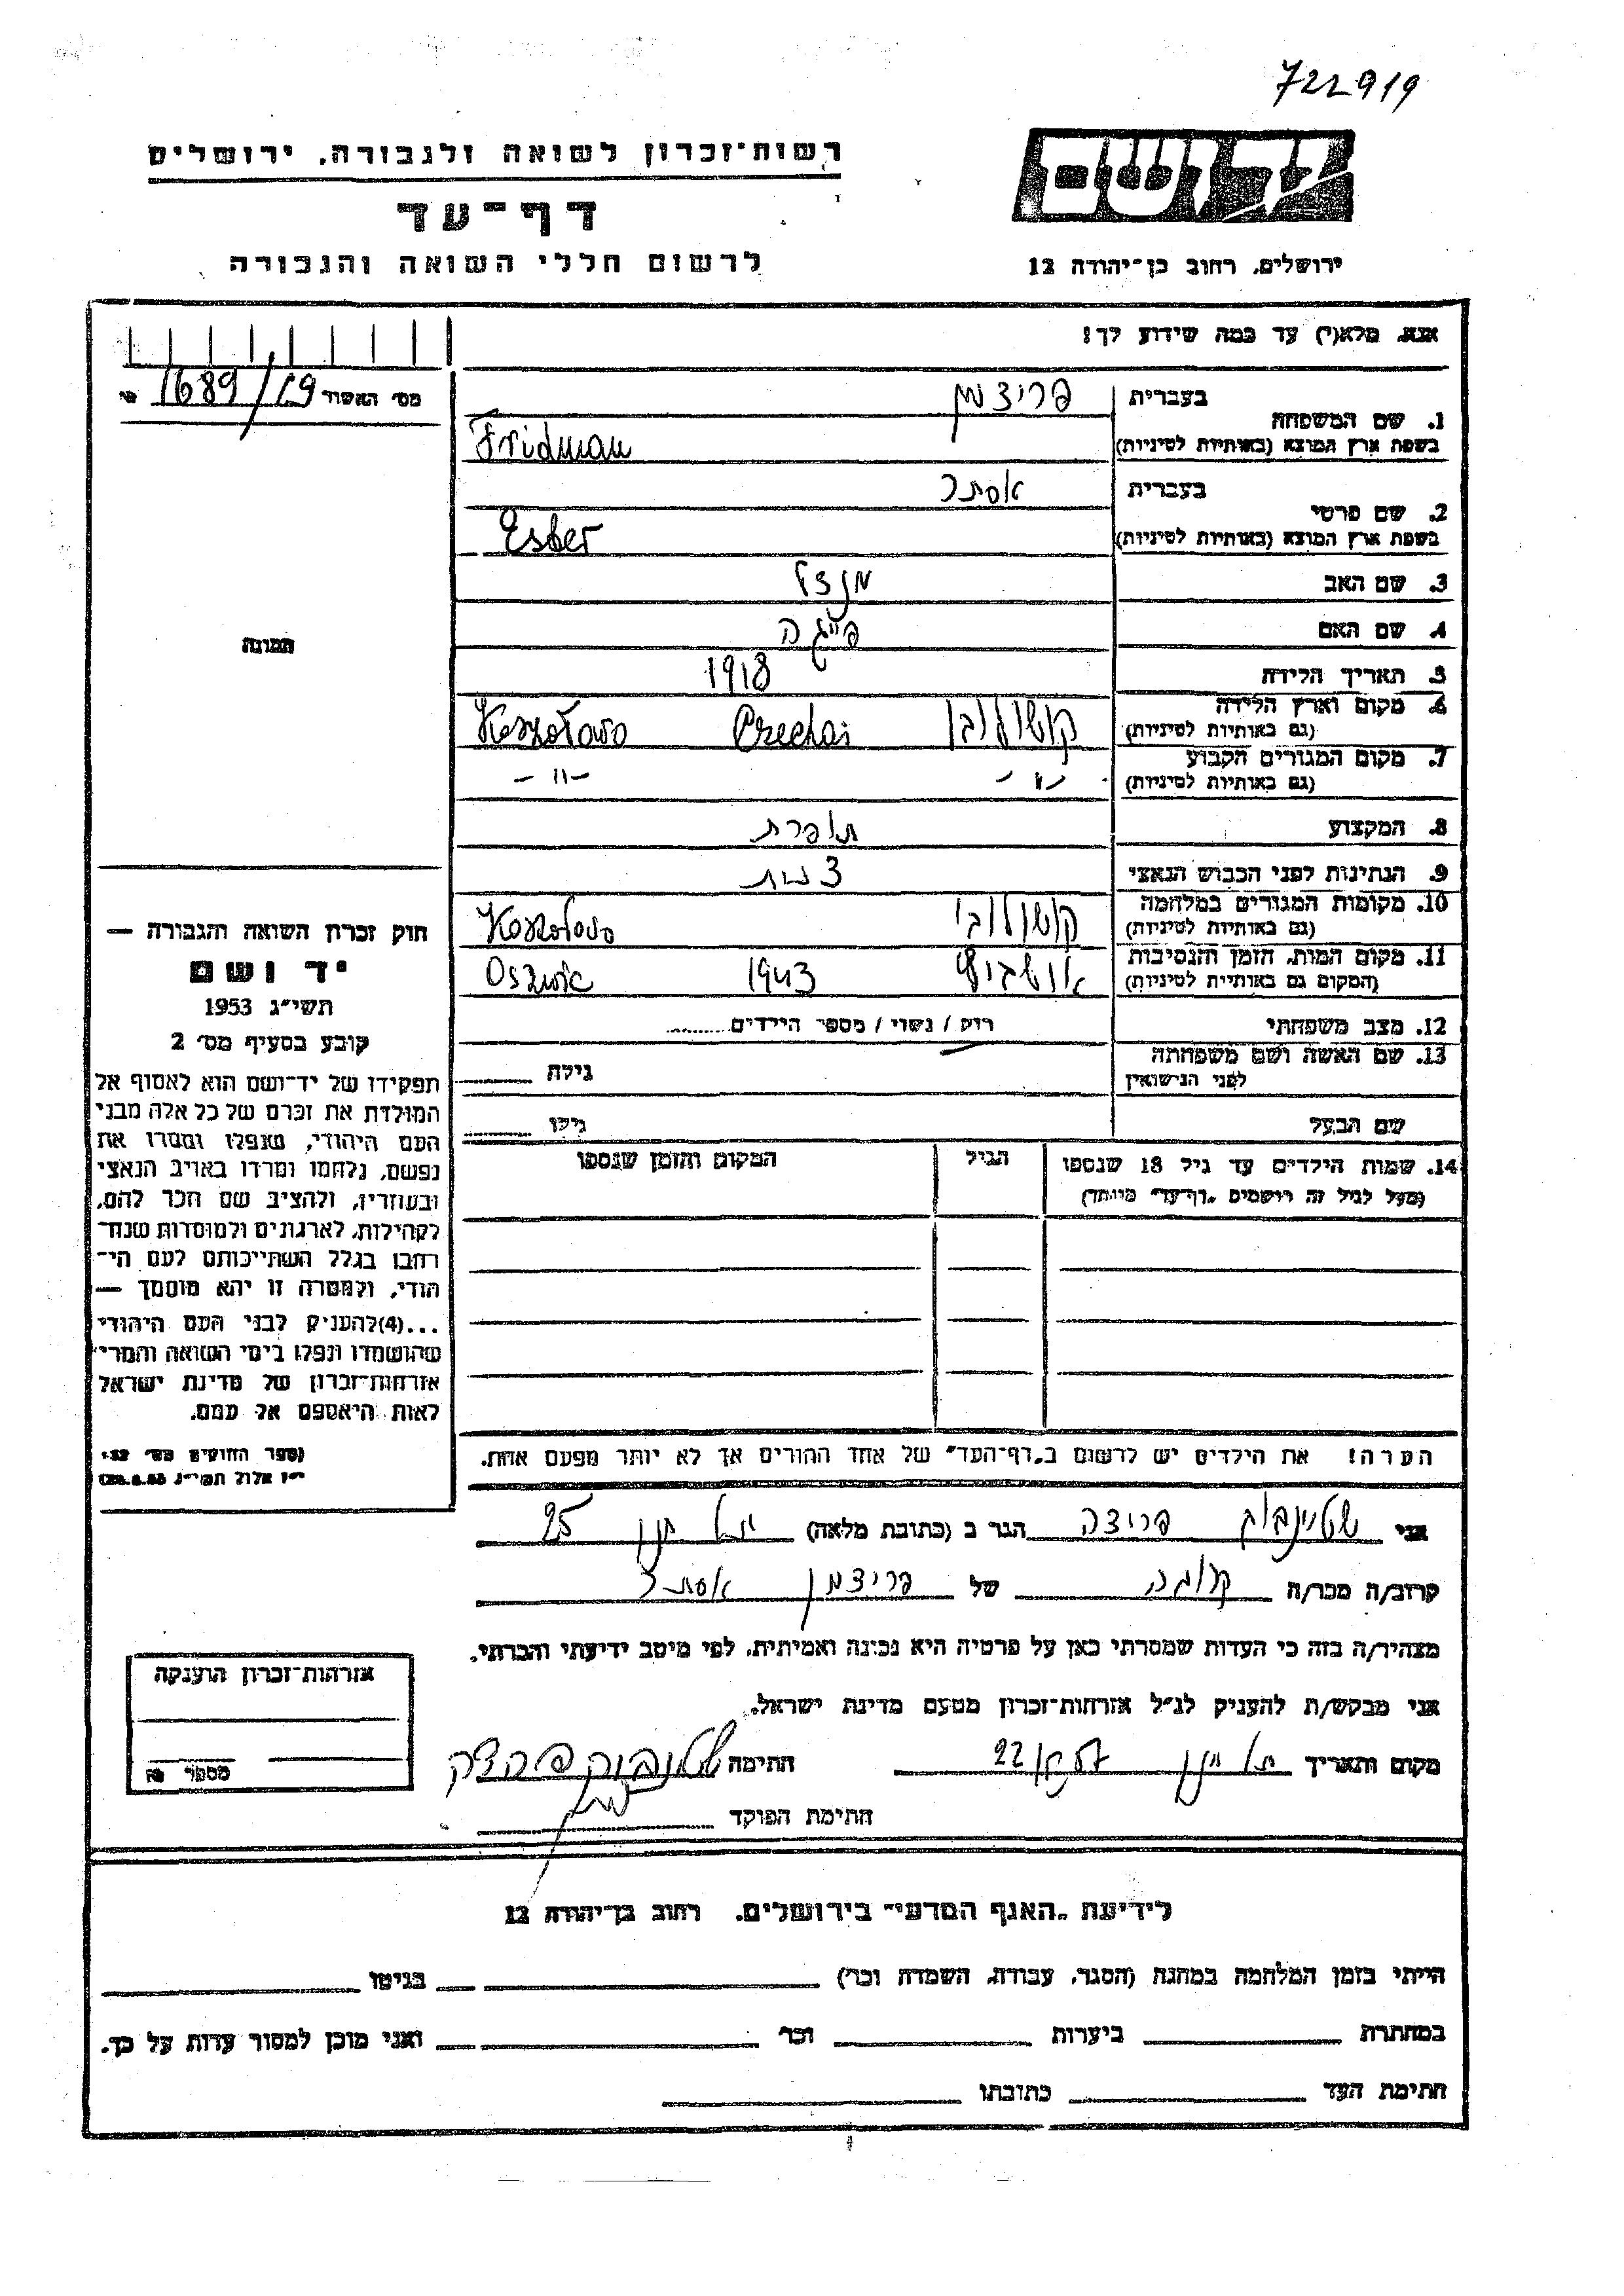 722919
יד ושם
רשות־זכרון לשואה ולגבורה, ירושלים
דף־עד
לרשום חללי השואה והגבורה
ירושלים, רחוב בן־יהודה 12
אנא, מלא(י) עד כמה שידוע לך!
מס׳ האשור 1689/19
1. שם המשפחה
בעברית פרידמן
בשפת ארץ המוצא (באותיות לטיניות) Fridman
2. שם פרטי
בעברית אסתר
בשפת ארץ המוצא (באותיות לטיניות) Ester
3. שם האב מנדל
4. שם האם פייגה
5. תאריך הלידה 1918
6. מקום וארץ הלידה
(גם באותיות לטיניות) Koszołowo
7. מקום המגורים הקבוע
(גם באותיות לטיניות) -״- -״-
8. המקצוע תופרת
9. הנתינות לפני הכבוש הנאצי
10. מקומות המגורים במלחמה
(גם באותיות לטיניות) Koszołowo
11. מקום המות, הזמן והנסיבות
(המקום גם באותיות לטיניות) 1943
12. מצב משפחתי רווק / נשוי / מספר הילדים
13. שם האשה ושם משפחתה
לפני הנישואין גילה
שם הבעל גילו
14. שמות הילדים עד גיל 18 שנספו
(מעל לגיל זה רושמים „דף־עד״ מיוחד)
הגיל
המקום והזמן שנספו
הערה! את הילדים יש לרשום ב„דף־העד״ של אחד ההורים אך לא יותר מפעם אחת.
תמונה
חוק זכרון השואה והגבורה —
יד ושם
תשי״ג 1953
קובע בסעיף מס׳ 2
תפקידו של יד־ושם הוא לאסוף אל
המולדת את זכרם של כל אלה מבני
העם היהודי, שנפלו ומסרו את
נפשם, נלחמו ומרדו באויב הנאצי
ובעוזריו, ולהציב שם וזכר להם,
לקהילות, לארגונים ולמוסדות שנח־
רבו בגלל השתייכותם לעם הי־
הודי, ולמטרה זו יהא מוסמך —
...(4) להעניק לבני העם היהודי
שהושמדו ונפלו בימי השואה והמרי
אזרחות־זכרון של מדינת ישראל
לאות היאספם אל עמם.
(ספר החוקים מס׳ 132
י״ז אלול תשי״ג 28.8.53)
אני פרידה הגר ב (כתובת מלאה) 25
קרוב/ה מכר/ה קרובה של פרידמן אסתר
מצהיר/ה בזה כי העדות שמסרתי כאן על פרטיה היא נכונה ואמיתית, לפי מיטב ידיעתי והכרתי.
אני מבקש/ת להעניק לנ״ל אזרחות־זכרון מטעם מדינת ישראל.
מקום ותאריך 22 חתימה
חתימת הפוקד
אזרחות־זכרון הוענקה
מספר
לידיעת „האגף המדעי״ בירושלים, רחוב בן־יהודה 12
הייתי בזמן המלחמה במחנה (הסגר, עבודה, השמדה וכו׳) בגיטו
במחתרת ביערות וכו׳ ואני מוכן למסור עדות על כך.
חתימת העד כתובתו